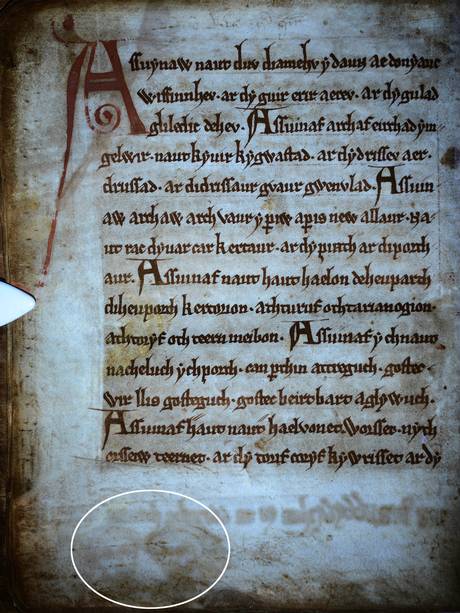 Assuynaw naut duv diamehv y daun ae donyauc
wiffinnhev. ar dy guir erir aerev. ar dy gulad
gliledic dehev. Assuinaf archaf eirchad ym
gelwir. naur kyuir kygwastad. ar dy drissev aer.
drussad. ar di drissaur gvaur gwenvlad. Assuin
aw archaw arch vaur y periw a peris new a llaur. Na
ut rac dy uar car kertaur. ar dy pirth ar diporth
aur. Assuinaf naut haut haelon deheuparth
diheuporth kertorion. ath turuf oth tarianogion.
ath toryf oth teern meibon. Assuinaf ych naut
nacheluch ych porth. can perthin attreguch. gostec
wir llis gosteguch. gostec beirt bart a glywuch.
Assuinaf haut naut haelvonet. Worsset. nyth
orssetv teernet. ar dy toruf coryf kywrisset ar dy